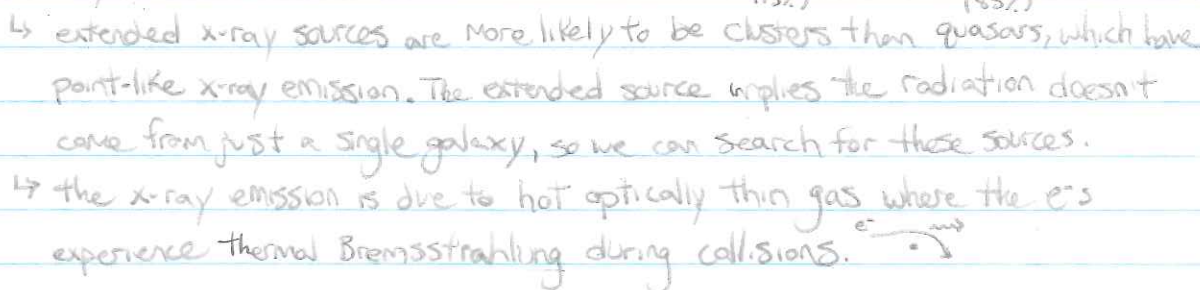 ↳ extended x-ray sources are more likely to be clusters than quasars, which have
point-like x-ray emission. The extended source implies the radiation doesn't
come from just a single galaxy, so we can search for these sources.
↳ the x-ray emission is due to hot optically thin gas where the e⁻s
experience thermal Bremsstrahlung during collisions. e⁻